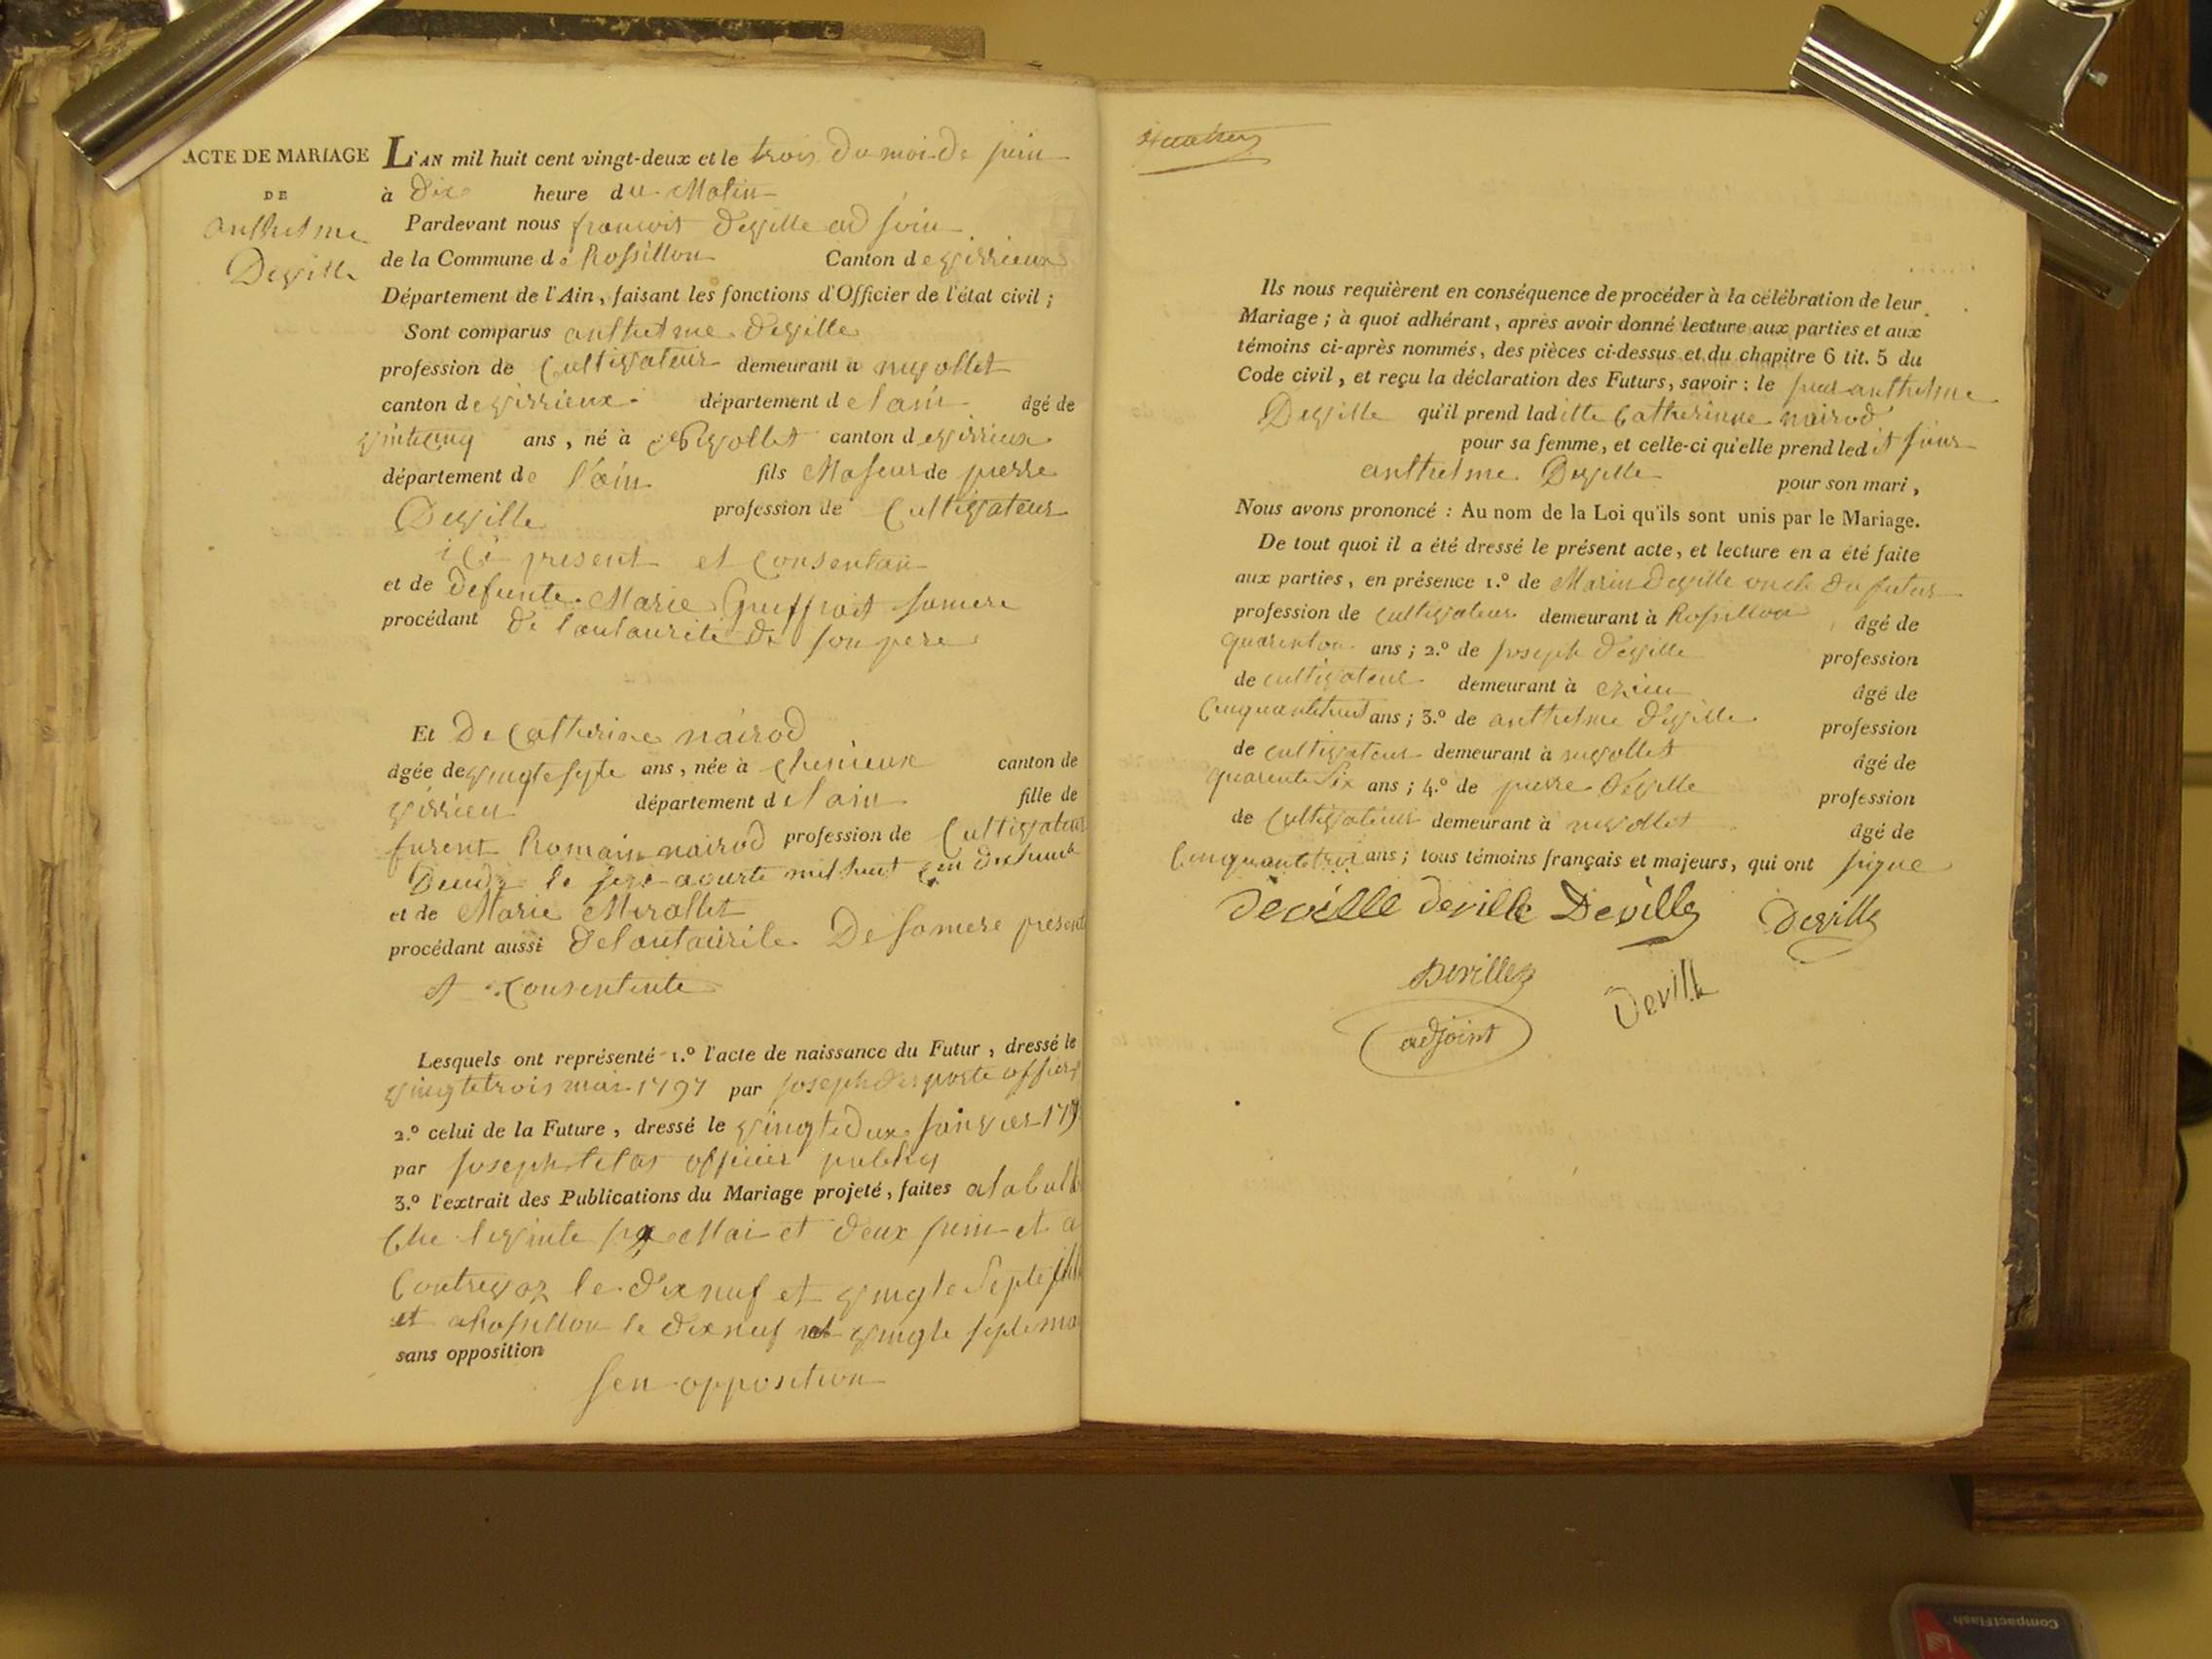 ACTE DE MARIAGE
DE
anthelme
Deville
L'AN mil huit cent vingt-deux et le trois du moi de juin
à dix heure du Matin
Pardevant nous francois deville adjoin
de la Commune de Rossillon Canton de virrieux
Département de l'Ain, faisant les fonctions d'Officier de l'état civil ;
Sont comparus anthelme deville
profession de Cultivateur demeurant a nuvollet
canton de virrieux département de lain âgé de
vintecinq ans, né à canton de virrieux
département de l'ain fils Majeur de pierre
Deville profession de Cultivateur
ici present et consentan
et de defunte Marie sa mere
procédant de lautaurité de son pere
Et De Catherine nairod
âgée de vingtesepte ans, née à cheinieux canton de
virrieu département de lain fille de
Romain nairod profession de Cultivateur
le mil huit cen
et de Marie Merollet
procédant aussi de lautaurite De sa mere present
et consentente
Lesquels ont représenté 1.º l'acte de naissance du Futur, dressé le
vingtetrois mai 1797 par joseph officier
2.º celui de la Future, dressé le vingtedeux janvier 179
par joseph officier publiq
3.º l'extrait des Publications du Mariage projeté, faites a labalb
che le vinte Mai et deux juin et a
Contrevoz le dix neuf et vingte septe
et a Rossillon le dix neuf et vingte septe ma
sans opposition
sen opposition
Ils nous requièrent en conséquence de procéder à la célébration de leur
Mariage ; à quoi adhérant, après avoir donné lecture aux parties et aux
témoins ci-après nommés, des pièces ci-dessus et du chapitre 6 tit. 5 du
Code civil, et reçu la déclaration des Futurs, savoir : le sieur anthelme
Deville qu'il prend laditte Catherinne nairod
pour sa femme, et celle-ci qu'elle prend ledit sieur
anthelme Deville pour son mari,
Nous avons prononcé : Au nom de la Loi qu'ils sont unis par le Mariage.
De tout quoi il a été dressé le présent acte, et lecture en a été faite
aux parties, en présence 1.º de Marin Deville oncle du futur
profession de cultivateur demeurant à Rossillon âgé de
ans ; 2.º de joseph deville profession
de cultivateur demeurant à âgé de
Cinquantehuit ans ; 3.º de anthelme deville profession
de cultivateur demeurant à nuvollet âgé de
quarente six ans ; 4.º de pierre deville profession
de cultivateur demeurant à nuvollet âgé de
Cinquantetroi ans ; tous témoins français et majeurs, qui ont signe
deville deville Deville Deville
Deville
Deville
adjoint
CompactFlash